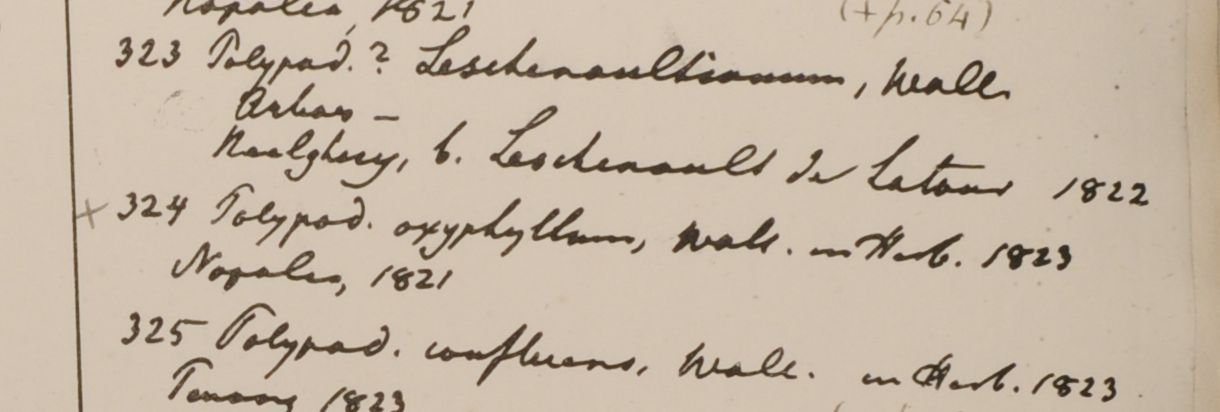 Napalia, 1821 (+p. 64)
323 Polypod. ? Leschenaultianum, Wall
Arbor —
Neelghery, b. Leschenault de Latour 1822
+ 324 Polypod. oxyphyllum, Wall. in Herb. 1823
Napalia, 1821
325 Polypod. confluens, Wall. in Herb. 1823
Penang 1823